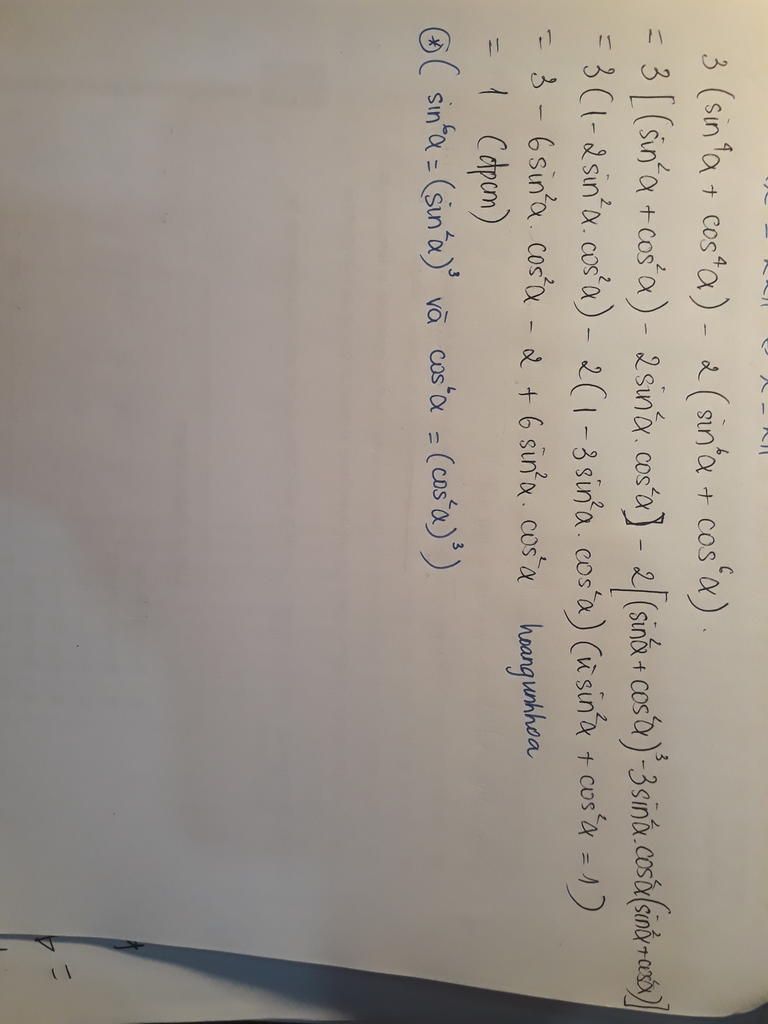 3 (sin⁴α + cos⁴α) - 2 (sin⁶α + cos⁶α).
= 3 [(sin²α + cos²α) - 2sin²α.cos²α] - 2[(sin²α + cos²α)³ - 3sin²α.cos²α(sin²α+cos²α)]
= 3 (1 - 2sin²α.cos²α) - 2(1 - 3sin²α.cos²α) (vì sin²α + cos²α = 1)
= 3 - 6sin²α.cos²α - 2 + 6sin²α.cos²α hoangunhhoa
= 1 (đpcm)
⊛( sin⁶α = (sin²α)³ và cos⁶α = (cos²α)³ )